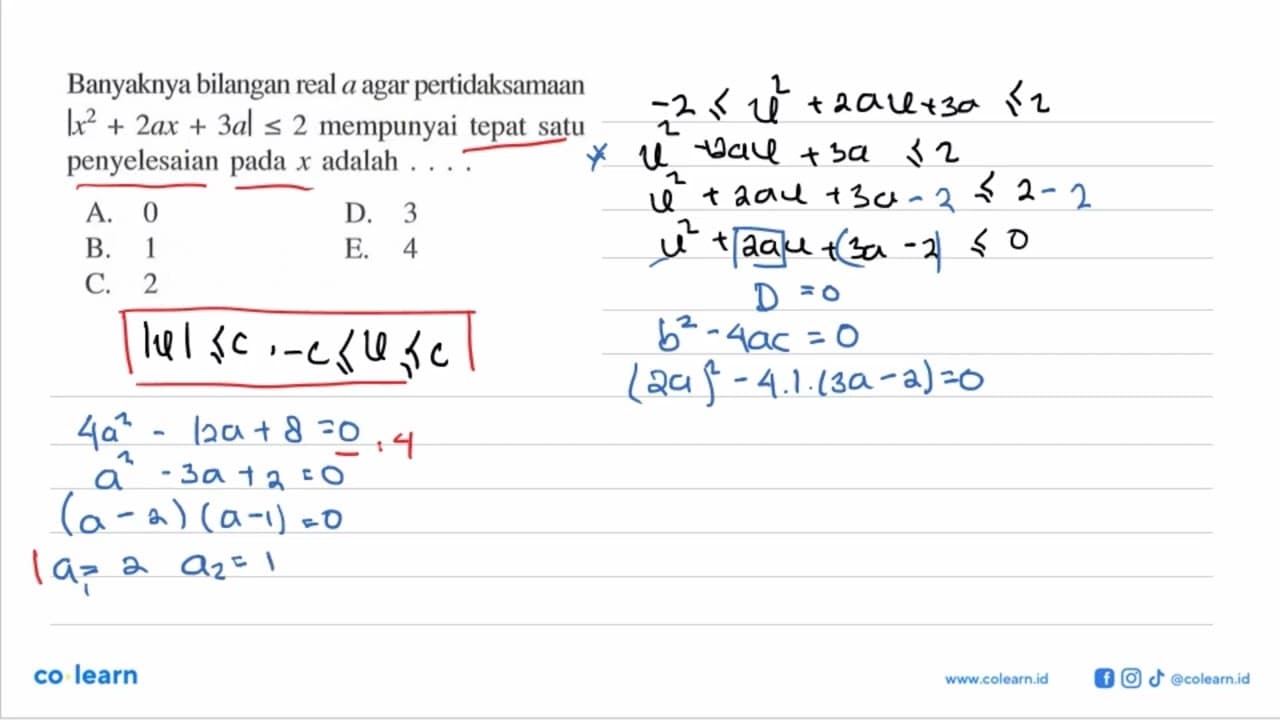 Banyaknya bilangan real a agar pertidaksamaan
|x² + 2ax + 3a| ≤ 2 mempunyai tepat satu
penyelesaian pada x adalah . . . .
A. 0
B. 1
C. 2
D. 3
E. 4
|x| ≤ c , -c ≤ x ≤ c
-2 ≤ x² + 2ax + 3a ≤ 2
* x² + 2ax + 3a ≤ 2
x² + 2ax + 3a - 2 ≤ 2 - 2
x² + 2ax + (3a - 2) ≤ 0
D = 0
b² - 4ac = 0
(2a)² - 4.1.(3a - 2) = 0
4a² - 12a + 8 = 0 : 4
a² - 3a + 2 = 0
(a - 2) (a - 1) = 0
a₁ = 2 a₂ = 1
co learn
www.colearn.id
@colearn.id